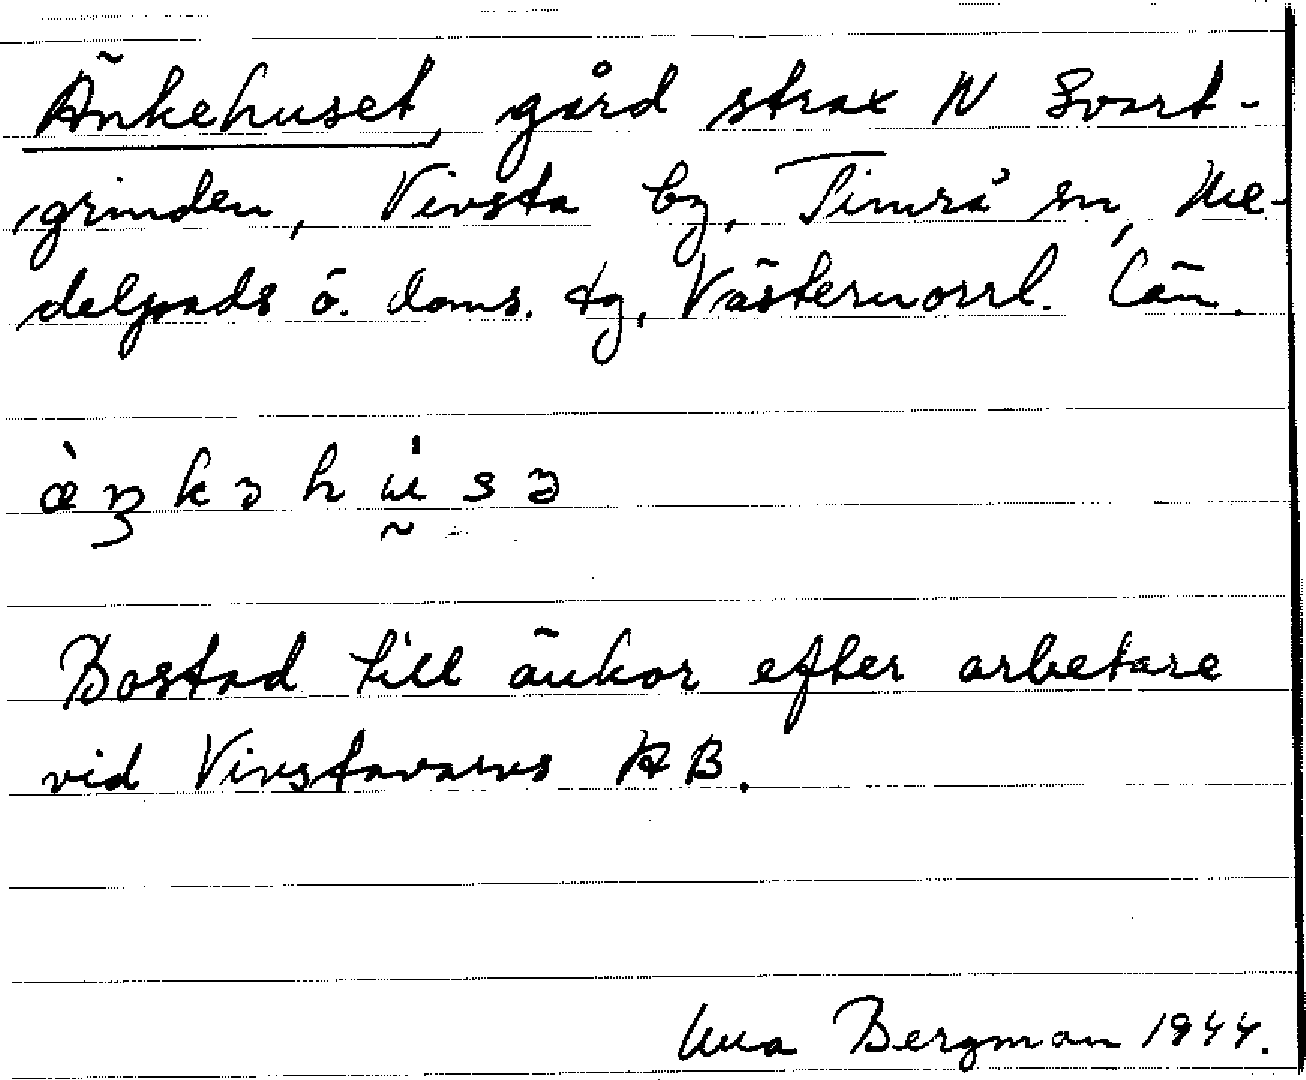 Änkehuset, gård strax N Svart-
grinden, Vivsta by, Timrå sn, Me-
delpads ö. doms. tg, Västernorrl. län.
ὰŋkəhṵ́sə
Bostad till änkor efter arbetare
vid Vivstavarvs AB.
Bergman 1944.